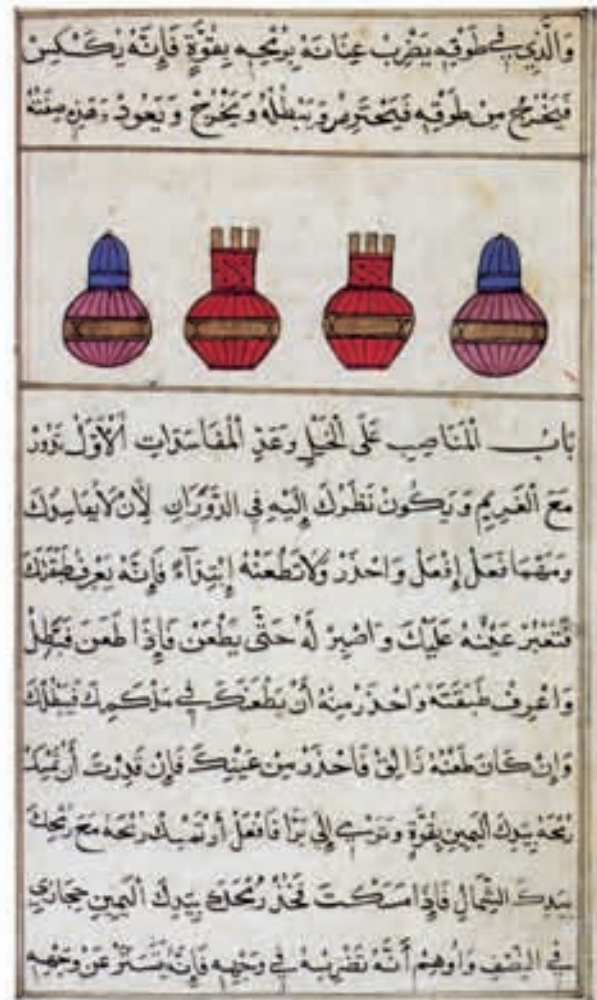 وَالَّذِي فِي طَوْقِهِ يَضْرِبُ عِنَانَهُ بِرُمْحِهِ بِقُوَّةٍ فَإِنَّهُ يَنْكَسِرُ
فَيَخْرُجُ مِنْ طَوْقِهِ فَيَحْتَرِصُ وَيُبْطِلُهُ وَيَخْرُجُ وَيَعُودُ وَهَذِهِ صِفَتُهُ
بَابُ الْمَنَاصِبِ عَلَى الْخَيْلِ وَعَدَدِ الْأَوَّلُ تَدُورُ
مَعَ الْغَرِيمِ وَيَكُونُ نَظَرُكَ إِلَيْهِ فِي الدَّوَرَانِ لِأَنْ لَا
وَمَهْمَا فَعَلَ إِفْعَلْ وَاحْذَرْ وَلَا تَطْعَنْهُ إِبْتِدَآءً فَإِنَّهُ يَعْرِفُ طَبَقَتَكَ
عَلَيْكَ وَاصْبِرْ لَهُ حَتَّى يَطْعَنَ فَإِذَا طَعَنَ فَبَطِّلْ
وَاعْرِفْ طَبَقَتَهُ وَاحْذَرْ مِنْهُ أَنْ يَطْعَنَكَ فِي
وَإِنْ كَانَ طَعْنُهُ فَاحْذَرْ مِنْ عَيْنِكَ فَإِنْ قَدِرْتَ أَنْ تَمْسِكَ
رُمْحَهُ بِيَدِكَ الْيَمِينِ بِقُوَّةٍ وَتَرْمِي إِلَى بَرَّا فَافْعَلْ أَوْ تَمْسِكْ رُمْحَهُ مَعَ رُمْحِكَ
بِيَدِكَ الشِّمَالِ فَإِذَا مَسَكْتَ فَخُذْ رُمْحَكَ بِيَدِكَ الْيَمِينِ حِجَازِي
فِي النِّصْفِ وَأَوْهِمْ أَنَّهُ تَضْرِبُهُ فِي وَجْهِهِ فَإِنَّهُ يَسْتَتِرُ عَنْ وَجْهِهِ